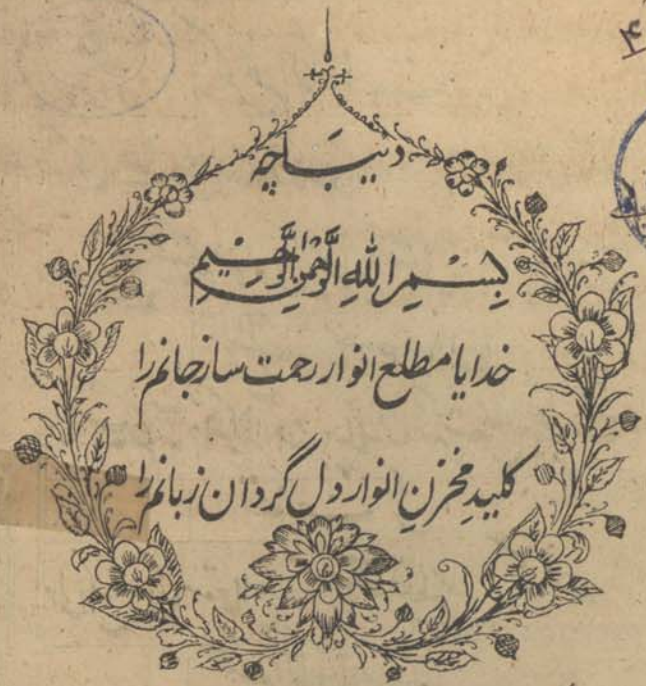 ۴
دیباچہ
بِسْمِ اللهِ الرَّحْمٰنِ الرَّحِیْمِ
خدایا مطلع انوار رحمت ساز جانم را
کلیدِ مخزنِ انوار دل گردان زبانم را